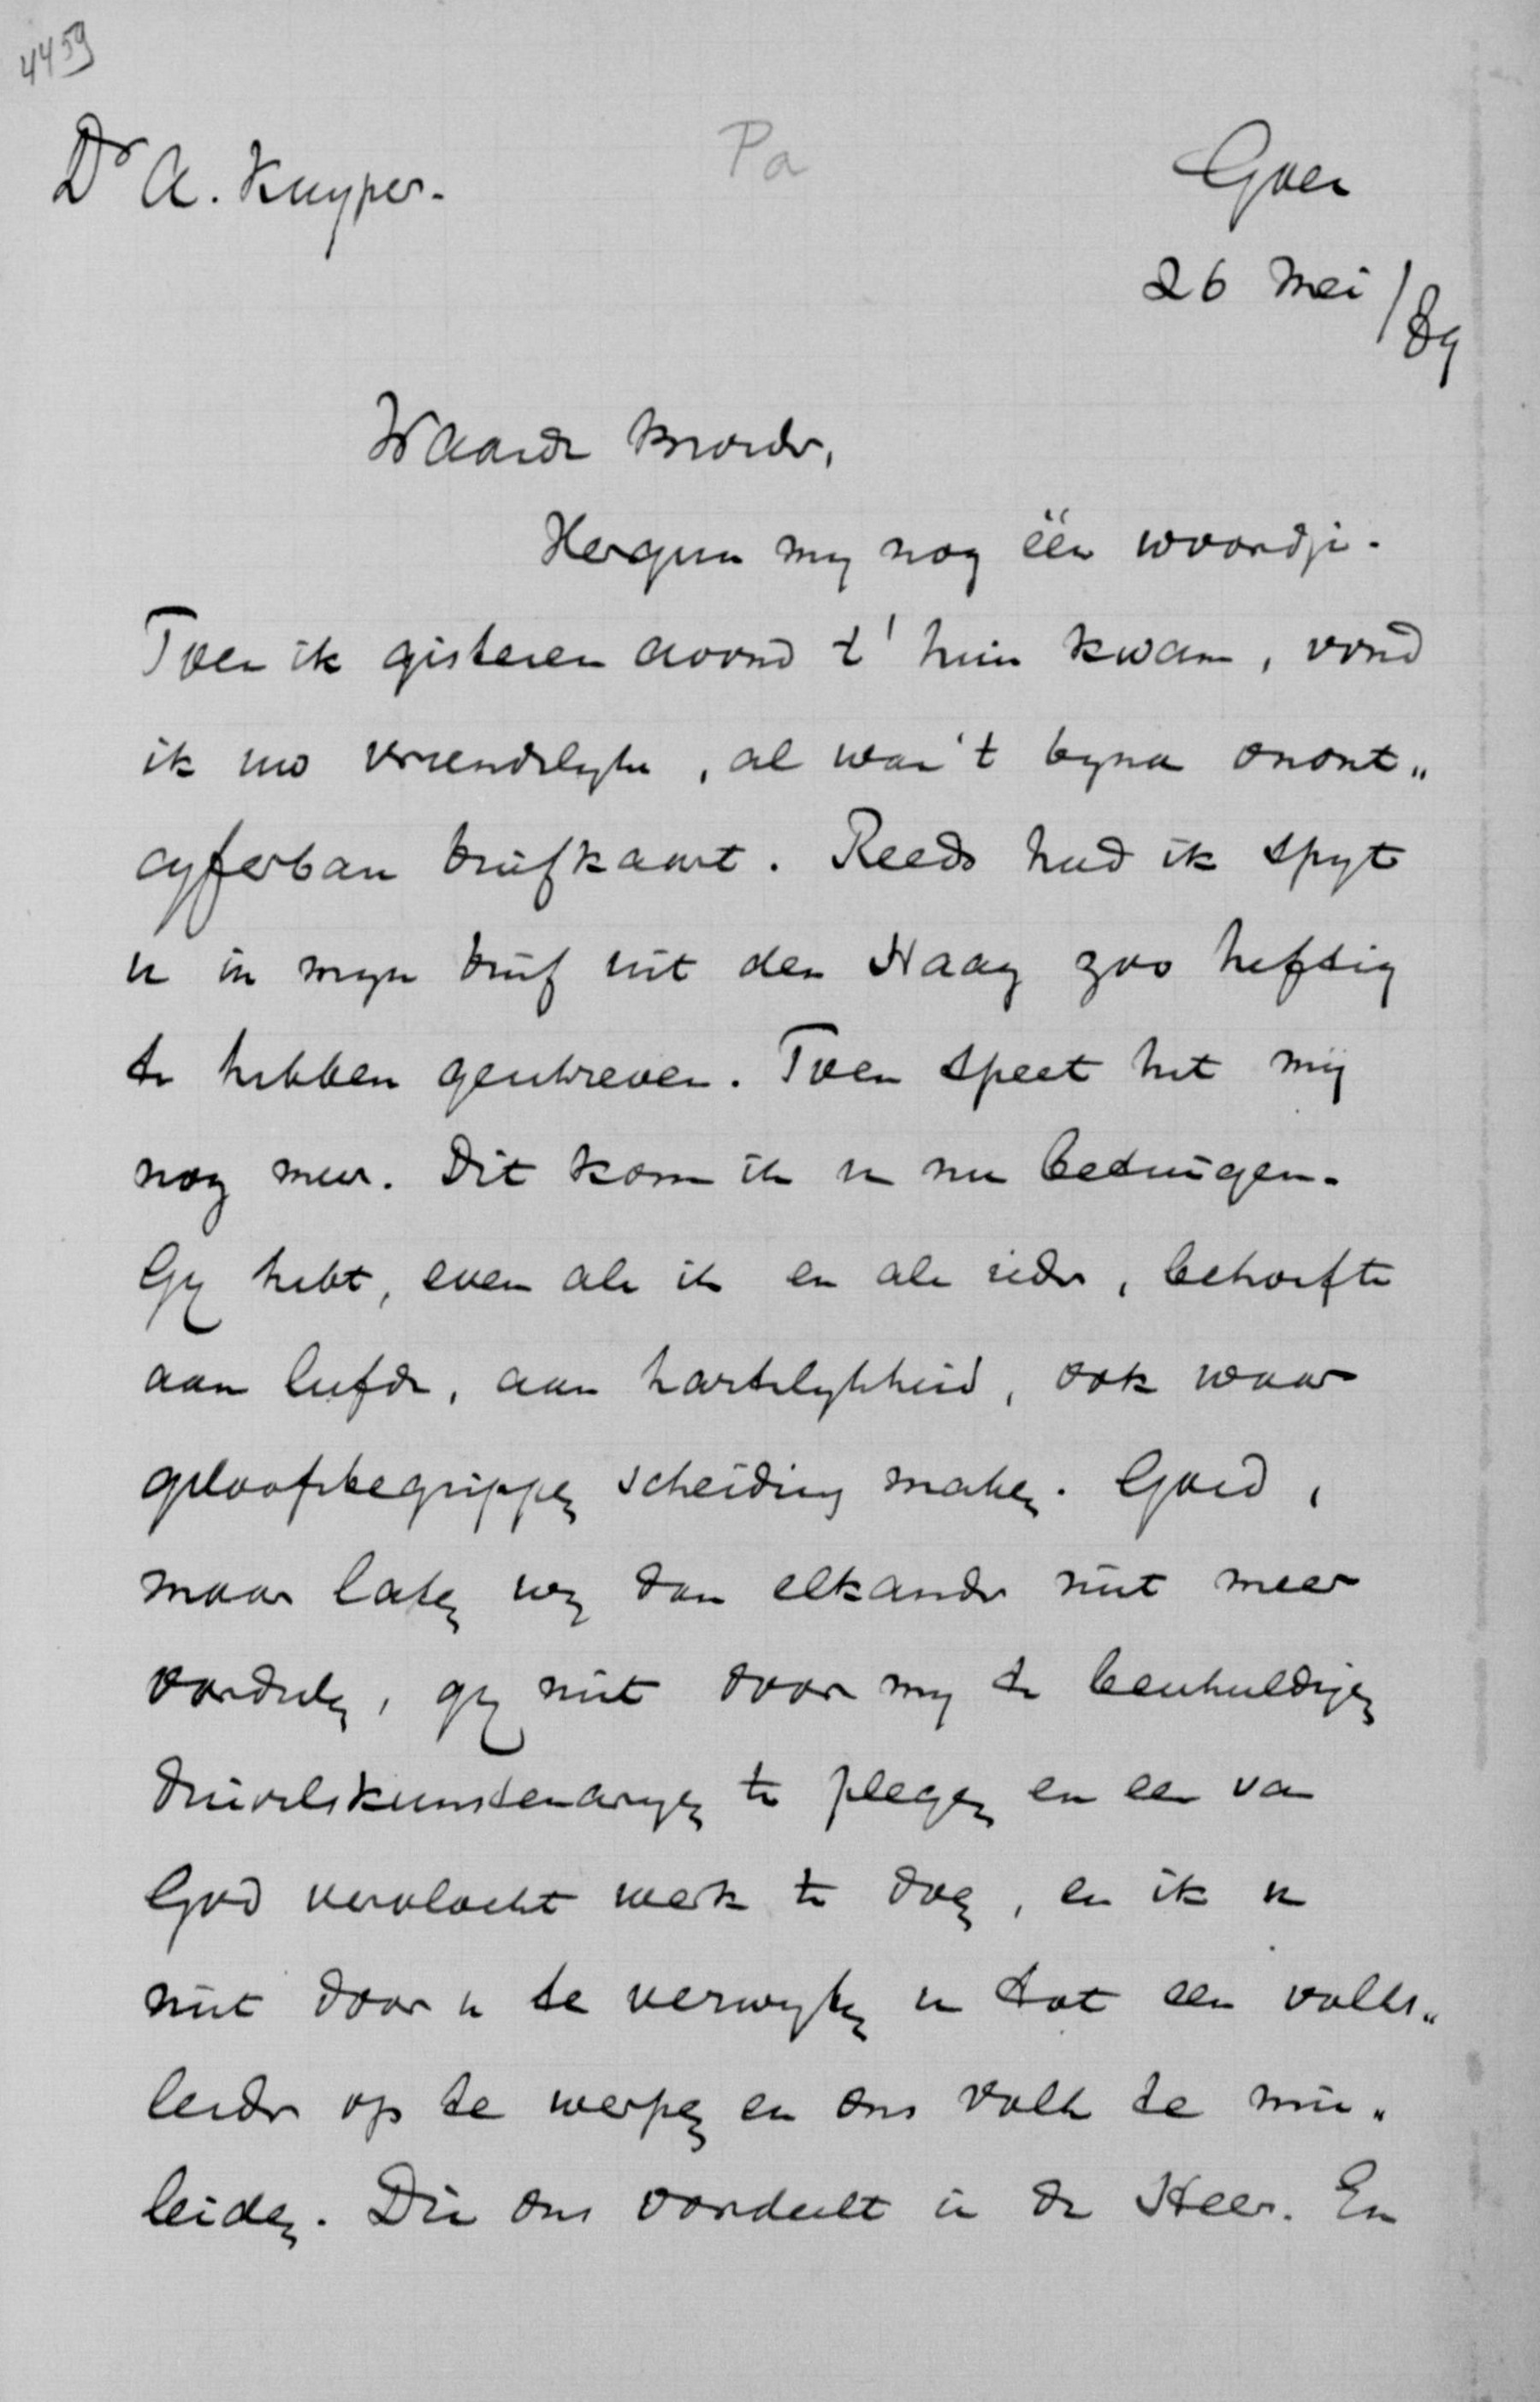 4459
Dr A. Kuyper.
Pa
Goes
26 Mei /89
Waarde Broeder,
Vergun my nog één woordje.
Toen ik gisteren avond t' huis kwam, vond
ik uw vriendelyke, al was 't byna onont„
cyferbare briefkaart. Reeds had ik spyt
u in myn brief uit den Haag zoo heftig
te hebben geschreven. Toen speet het mij
nog meer. Dit kom ik u nu betuigen.
Gy hebt, even als ik en als ieder, behoefte
aan liefde, aan hartelykheid, ook waar
geloofsbegrippen scheiding maken. Goed,
maar laten wy dan elkander niet meer
oordeelen, gy niet door my te beschuldigen
duivelskunstenaryen te plegen en een van
God vervloekt werk te doen, en ik u
niet door u te verwyten u tot een volks„
leider op te werpen en ons volk te mis„
leiden. Die ons oordeelt is de Heer. En